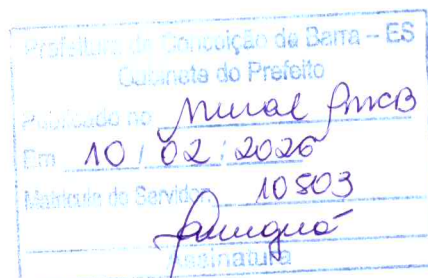 Prefeitura de Conceição da Barra – ES
Gabinete do Prefeito
Publicado no Mural PMCB
Em 10 / 02 / 2026
Matrícula do Servidor 10803
Assinatura